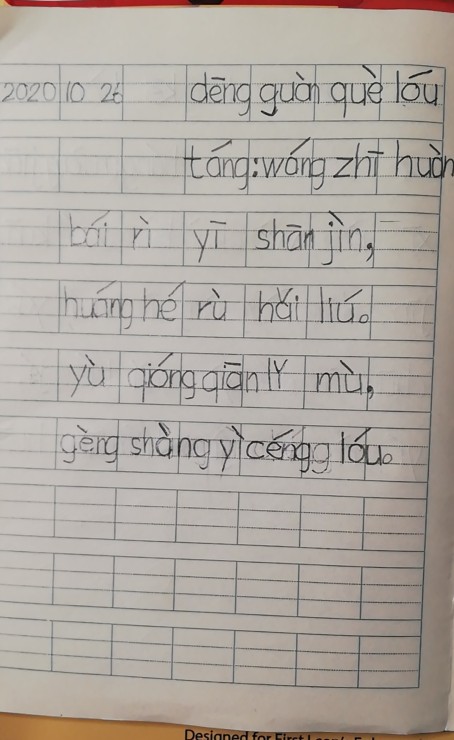 2020 10 26 dēng guàn què lóu
táng:wáng zhī huàn
bái rì yī shān jìn,
huáng hé rù hǎi liú。
yù qióng qiān lǐ mù,
gèng shàng yì céngg lóu。
Designed for First